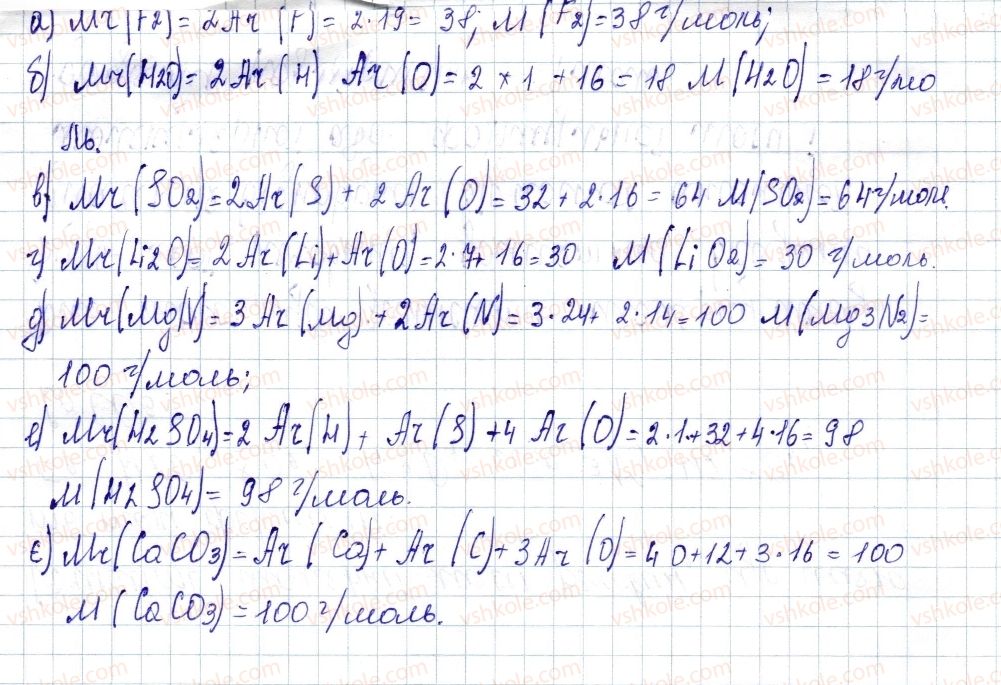 а) Mr(F2) = 2Ar (F) = 2·19 = 38; M (F2) = 38 г/моль;
б) Mr(H2O) = 2Ar (H) Ar (O) = 2 × 1 + 16 = 18 M (H2O) = 18 г/мо
ль.
в) Mr (SO2) = 2Ar (S) + 2 Ar (O) = 32 + 2·16 = 64 M (SO2) = 64 г/моль.
г) Mr(Li2O) = 2 Ar (Li) + Ar (O) = 2·7 + 16 = 30 M (LiO2) = 30 г/моль.
д) Mr(MgN) = 3 Ar (Mg) + 2 Ar (N) = 3·24 + 2·14 = 100 M (Mg3N2) =
100 г/моль;
е) Mr(H2SO4) = 2 Ar (H) + Ar (S) + 4 Ar (O) = 2·1 + 32 + 4·16 = 98
M (H2SO4) = 98 г/моль.
є) Mr (CaCO3) = Ar (Ca) + Ar (C) + 3Ar (O) = 40 + 12 + 3·16 = 100
M (CaCO3) = 100 г/моль.
vshkole.com